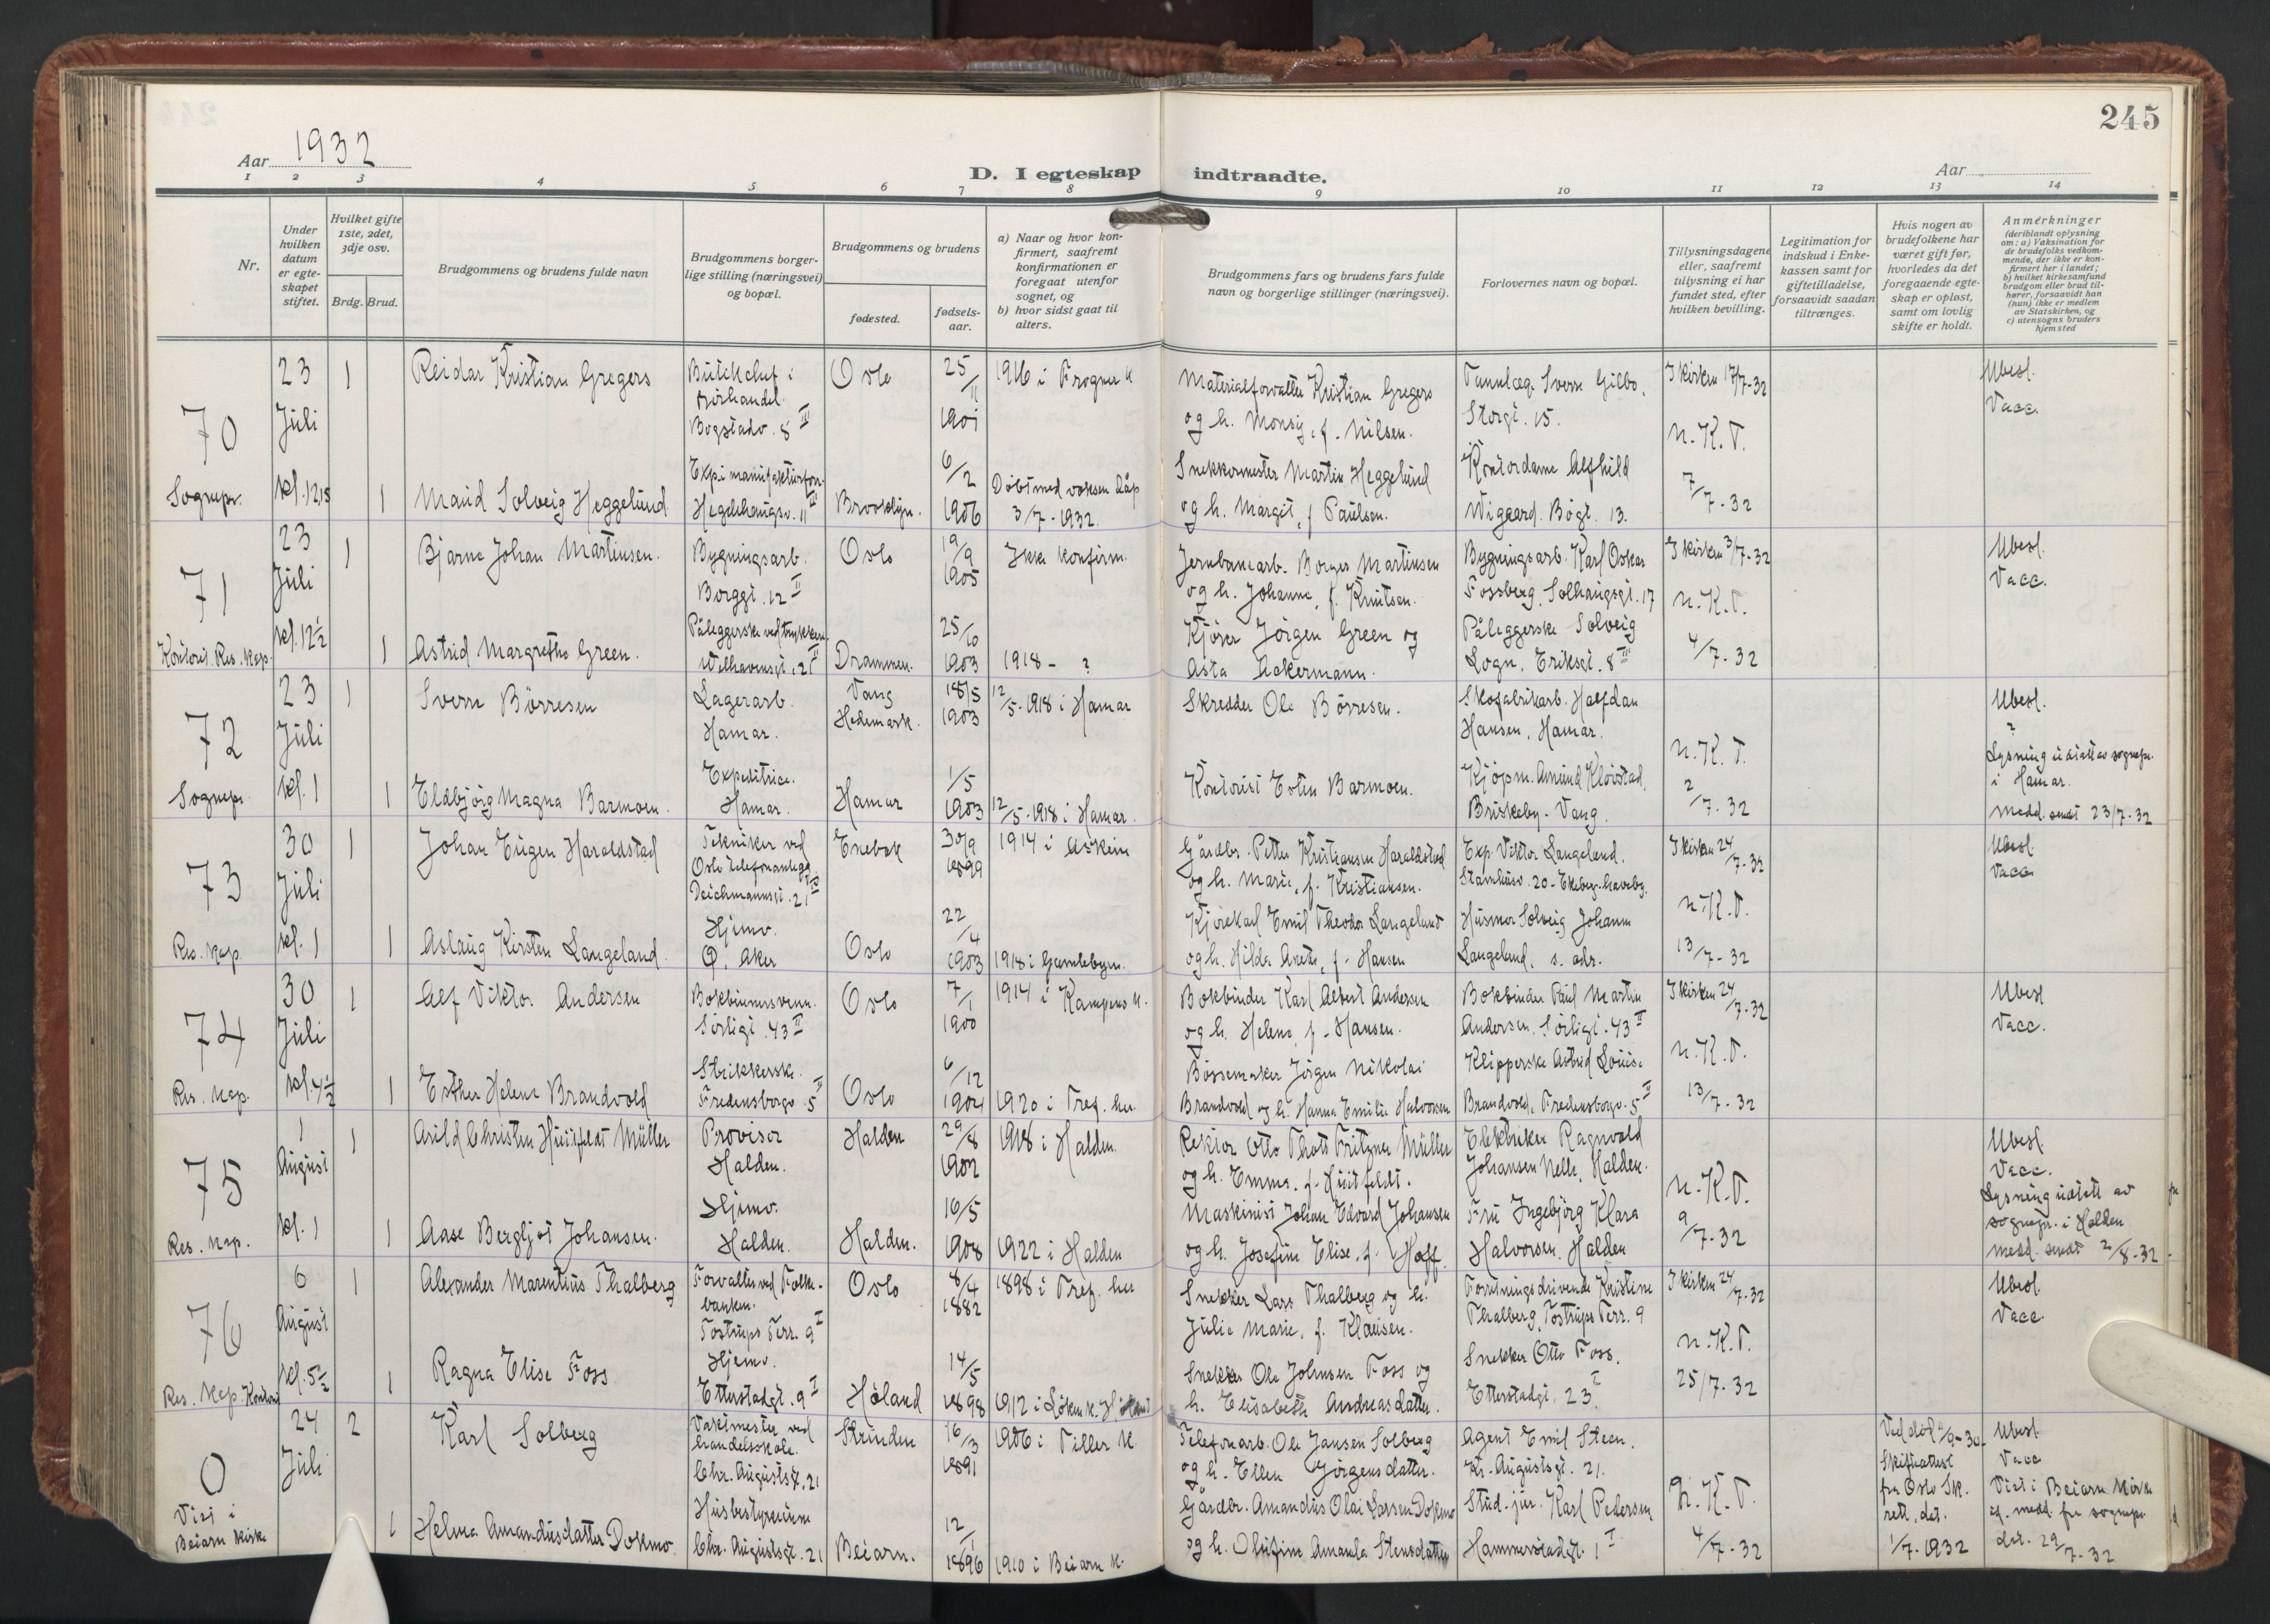 245
Aar 1932
D. I egteskap indtraadte.
Aar
1 2 3 4 5 6 7 8 9 10 11 12 13 14
Nr.
Under hvilken datum er egte-skapet stiftet.
Hvilket gifte 1ste, 2det, 3dje osv.
Brdg. Brud.
Brudgommens og brudens fulde navn
Brudgommens borger-lige stilling (næringsvei) og bopæl.
Brudgommens og brudens
fødested.
fødsels-aar.
a) Naar og hvor kon-firmert, saafremt konfirmationen er foregaat utenfor sognet, og
b) hvor sidst gaat til alters.
Brudgommens fars og brudens fars fulde navn og borgerlige stillinger (næringsvei).
Forlovernes navn og bopæl.
Tillysningsdagene eller, saafremt tillysning ei har fundet sted, efter hvilken bevilling.
Legitimation for indskud i Enke-kassen samt for giftetilladelse, forsaavidt saadan tiltrænges.
Hvis nogen av brudefolkene har været gift før, hvorledes da det foregaaende egte-skap er opløst, samt om lovlig skifte er holdt.
Anmerkninger (deriblandt oplysning om: a) Vaksination for de brudefolks vedkom-mende, der ikke er kon-firmert her i landet; b) hvilket kirkesamfund brudgom eller brud til-hører, forsaavidt han (hun) ikke er medlem av Statskirken, og c) utensogns bruders hjemsted
70 Sognepr.
23 Juli kl. 12,15
1 Reidar Kristian Gregers
Butikchef i
Bogstadv. 8 III
Oslo 25/11 1901
1916 i Frogner k
Materialforvalter Kristian Gregers
og h. Monsy, f. Nilsen.
Tannlæge Sverre Gilbo.
Storgt. 15.
I kirken 17/7-32
N.K.T.
7/7-32
Ubesl.
Vacc.
1 Maud Solveig Heggelund
Exp. i manufakturforr.
Hegdehaugsv. 11 III
Brooklyn. 6/2 1906
Döbt med voksen dåp
3/7-1932.
Snekkermester Martin Heggelund
og h. Margit, f. Paulsen.
Kontordame Alfhild
Wigaard. Bögt. 13.
71 Kontorist. Res. Kap.
23 Juli kl. 12 1/2
1 Bjarne Johan Martinsen.
Bygningsarb.
Borggt. 12 II
Oslo 19/9 1905
Ikke konfirm.
Jernbanearb. Borger Martinsen
og h. Johanne, f. Knutsen.
Bygningsarb. Karl Oskar
Fossberg, Solhaugsgt. 17
I kirken 3/7-32
N.K.T.
4/7-32
Ubesl.
Vacc.
1 Astrid Margrethe Green.
Påleggerske ved trykkeri.
Welhavensgt. 21 II
Drammen. 25/10 1903
1918 - ?
Kjörer Jörgen Green og
Asta Ackermann.
Påleggerske Solveig
Logn. Eriksgt. 8 III
72 Sognepr.
23 Juli kl. 1
1 Sverre Börresen
Lagerarb.
Hamar.
Vang Hedemark. 18/5 1903
12/5-1918 i Hamar
Skredder Ole Börresen.
Skofabrikarb. Halfdan
Hansen, Hamar.
N.K.T.
2/7-32
Ubesl.
?
Lysning utstedt av sognepr.
i Hamar.
Medd. sendt 23/7-32
1 Eldbjörg Magna Barmoen.
Expeditrice.
Hamar.
Hamar 1/5 1903
12/5-1918 i Hamar.
Kontorist Esten Barmoen.
Kjöpm. Amund Klövstad,
Briskeby - Vang.
73 Res. Kap.
30 Juli kl. 1
1 Johan Eugen Haraldstad
Tekniker ved
Oslo telefonanlegg.
Deichmannsgt. 21 III
Enebak 30/9 1899
1914 i Askim
Gårdbr. Petter Kristiansen Haraldstad
og h. Marie, f. Kristiansen.
Exp. Viktor Langeland.
Stamhusv. 20 - Ekeberg haveby.
I kirken 24/7-32
N.K.T.
13/7-32
Ubesl.
Vacc.
1 Aslaug Kirsten Langeland.
Hjemv.
Ö. Aker
Oslo 22/4 1903
1918 i Gamlebyen.
Kjörekarl Emil Theodor Langeland
og h. Hilda Anette, f. Hansen
Husmor Solveig Johanne
Langeland, s. adr.
74 Res. Kap.
30 Juli kl. 4 1/2
1 Alf Viktor Andersen
Bokbindersvenn.
Sörligt. 43 II
Oslo 7/1 1900
1914 i Kampens k.
Bokbinder Karl Albert Andersen
og h. Helene, f. Hansen.
Bokbinder Paul Martin
Andersen, Sörligt. 43 II
I kirken 24/7-32
N.K.T.
13/7-32
Ubesl
Vacc.
1 Esther Helene Brandvold
Strikkerske.
Fredensborgv. 5 II
Oslo 6/12 1904
1920 i Tref. ku.
Bössemaker Jörgen Nikolai
Brandvold og h. Hanna Emilie Halvorsen
Klipperske Astrid Louise
Brandvold, Fredensborgv. 5 II
75 Res. Kap.
1 August kl. 1
1 Arild Christen Huitfeldt Müller
Provisor
Halden.
Halden 29/8 1902
1918 i Halden.
Rektor Otto Thott Fritzner Müller
og h. Emma, f. Huitfeldt.
Elektriker Ragnvald
Johansen Helle, Halden.
N.K.T.
9/7-32
Ubesl
Vacc.
Lysning utstedt av
sognepr. i Halden
Medd. sendt 2/8-32
1 Aase Bergljot Johansen.
Hjemv.
Halden.
Halden. 16/5 1908
1922 i Halden
Maskinist Johan Edvard Johansen
og h. Josefine Elise, f. Hoff.
Fru Ingebjörg Klara
Halvorsen, Halden
76 Res. Kap. Kontoret
6 August kl. 5 1/2
1 Alexander Marentius Thalberg
Forvalter ved Folke-
banken.
Tostrups Terr. 9 I
Oslo 8/4 1882
1898 i Tref. ku
Snekker Lars Thalberg og h.
Julie Marie, f. Klausen.
Forretningsdrivende Kristine
Thalberg, Tostrups Terr. 9
I kirken 24/7-32
N.K.T.
25/7-32
Ubesl.
Vacc.
1 Ragna Elise Foss
Hjemv.
Etterstadgt. 9 I
Höland 14/5 1898
1912 i Löken k. Höland
Snekker Ole Johnsen Foss og
h. Elisabeth Andreasdatter.
Snekker Otto Foss,
Etterstadgt. 23 I
0 Viet i Beiarn kirke
24 Juli
2 Karl Solberg
Vaktmester ved
handelsskole.
Chr. Augustsgt. 21
Strinden 16/3 1891
1906 i Tiller k.
Telefonarb. Ole Jansen Solberg
og h. Ellen Jörgensdatter.
Agent Emil Steen.
Kr. Augustsgt. 21.
N.K.T.
4/7-32
Skifteattest
fra Oslo Sk.
rett, dat.
1/7-1932
Ubesl.
Vacc
Viet i Beiarn Kirke
if. medd. fra sognepr.
dat. 29/7-32
1 Helma Amandusdatter Dokmo.
Husbestyrerinne
Chr. Augustsgt. 21
Beiarn. 12/1 1896
1910 i Beiarn k.
Gårdbr. Amandus Olai Larsen Dokmo
og h. Olufine Amanda Stensdatter
Stud. jur. Karl Pedersen
Hammerstadgt. 1 I